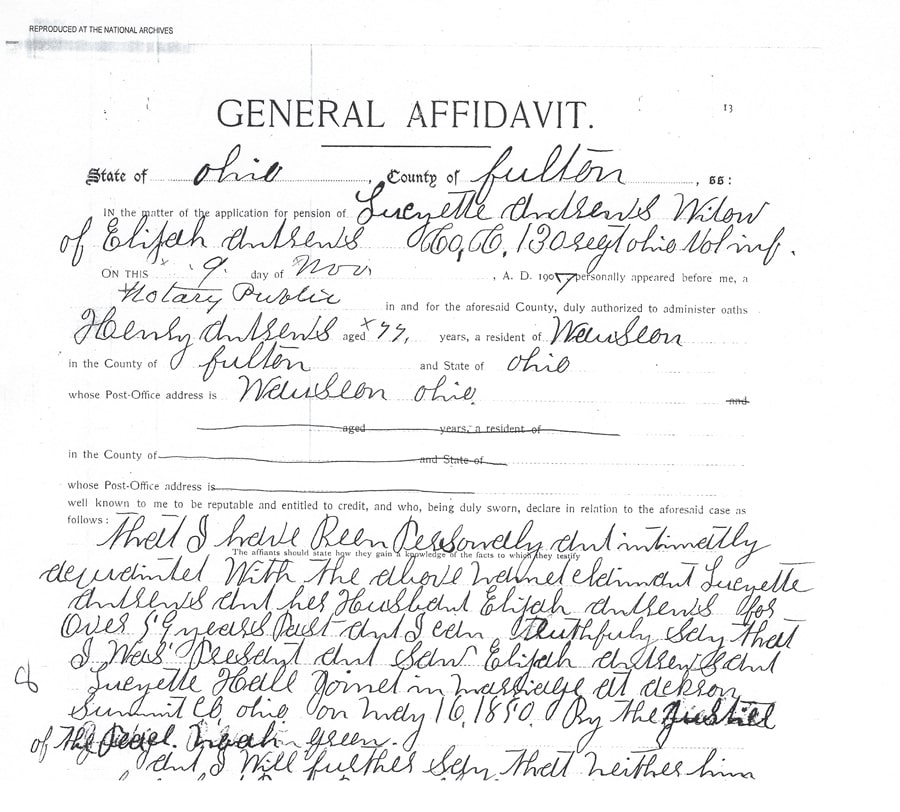 REPRODUCED AT THE NATIONAL ARCHIVES
13
GENERAL AFFIDAVIT.
State of ohio, County of fulton, ss:
IN the matter of the application for pension of Lucyette Andrews Widow
of Elijah Andrews Co, 130 regt ohio Vol inf.
ON THIS 9. day of Nov, A. D. 1907 personally appeared before me, a
Notary Public in and for the aforesaid County, duly authorized to administer oaths
Henry Andrews aged 77, years, a resident of Wauseon
in the County of fulton and State of ohio
whose Post-Office address is Wauseon ohio. and
aged years, a resident of
in the County of and State of
whose Post-Office address is
well known to me to be reputable and entitled to credit, and who, being duly sworn, declare in relation to the aforesaid case as
follows:
that I have Been Personally and intimatly
The affiants should state how they gain a knowledge of the facts to which they testify
acquainted With the above named claimant Lucyette
Andrews and her Husband Elijah Andrews for
Over 59 years Past and I can Truthfuly Say that
I Was Presant and Saw Elijah Andrews and
8
Lucyette Hall Joined in marriage at
Summit Co, ohio on May 16, 1850. By the Justice
of the green.
and I Will further Say that neither him